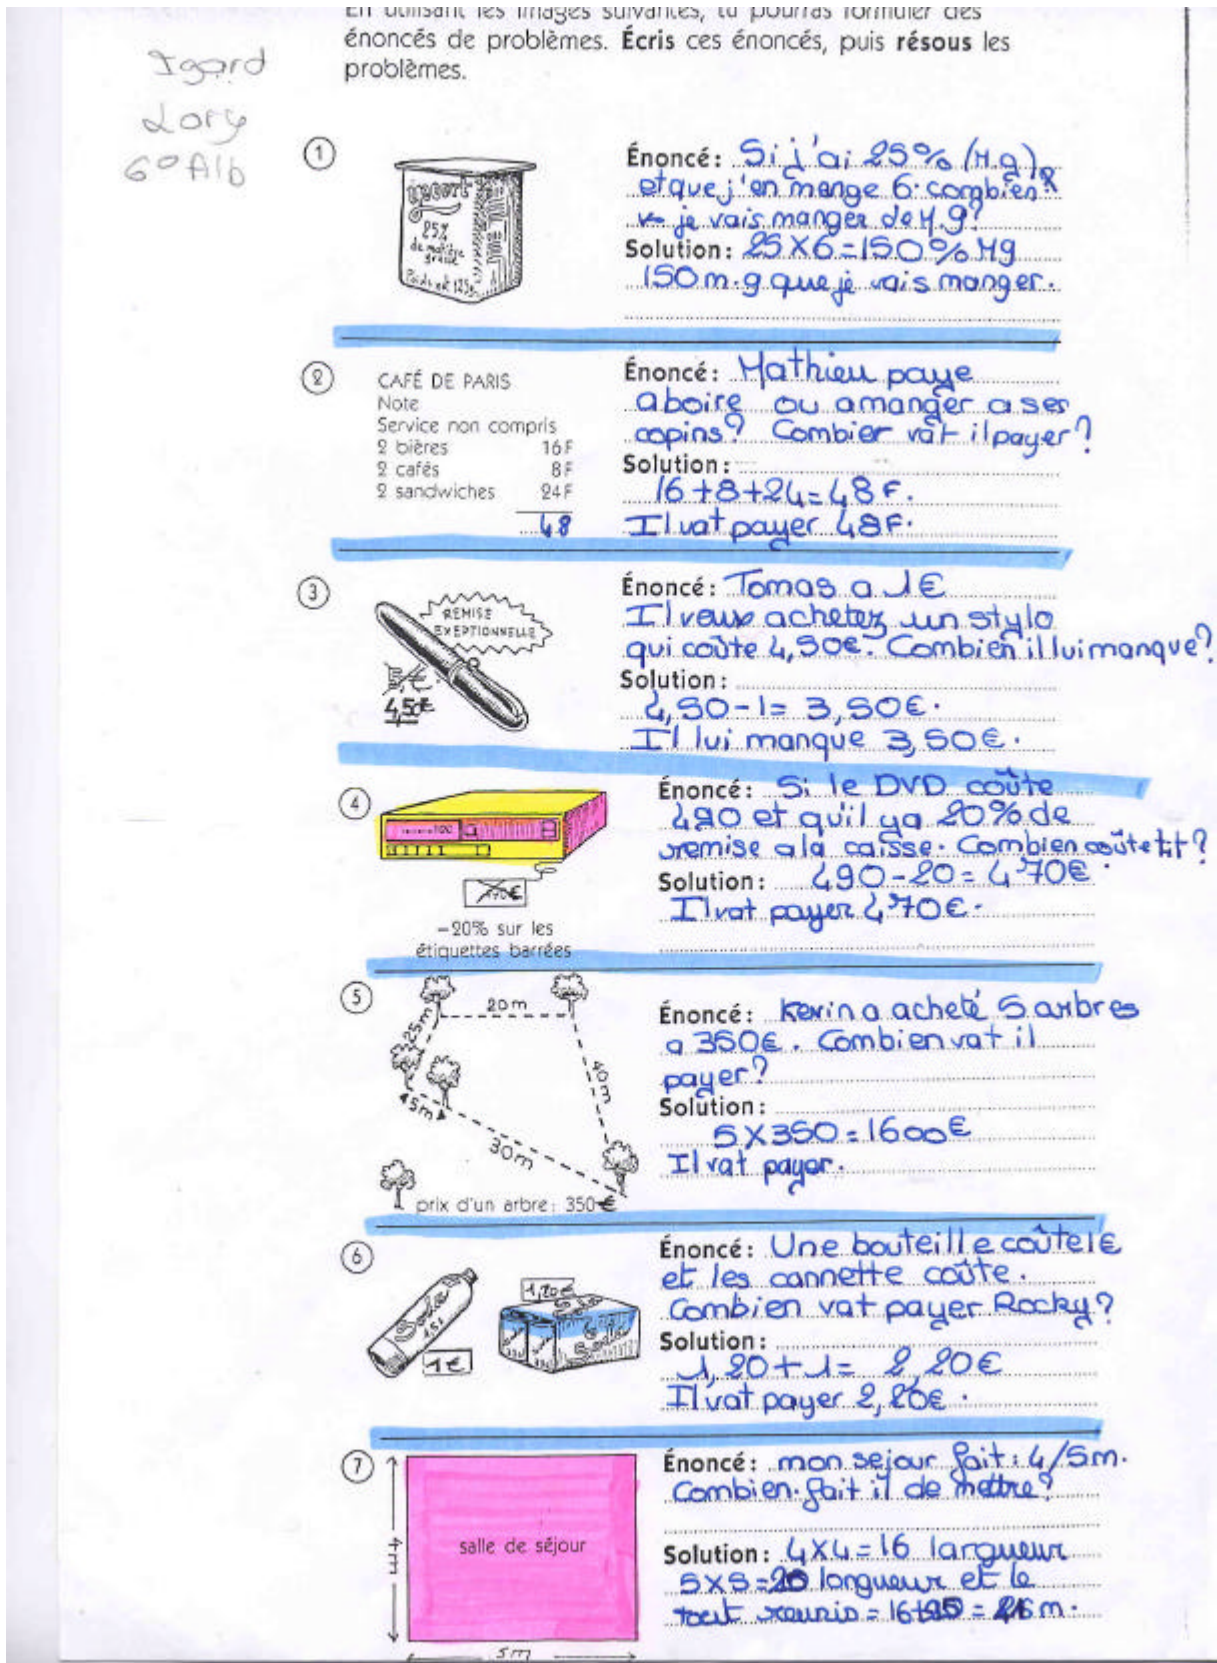 En utilisant les images suivantes, tu pourras formuler des
énoncés de problèmes. Écris ces énoncés, puis résous les
problèmes.
Igard
Lory
6° Alb
1
yaourt
25%
de matière
grasse
Poids net 125g
Énoncé : Si j'ai 25% (M.g)
et que j'en mange 6. combien
je vais manger de M.g?
Solution : 25 X 6 = 150 % Mg
150 m.g que je vais manger.
2
CAFÉ DE PARIS
Note
Service non compris
2 bières 16F
2 cafés 8F
2 sandwiches 24F
48
Énoncé : Mathieu paye
aboire ou amanger a ses
copins? Combier vat il payer?
Solution :
16 + 8 + 24 = 48 F.
Il vat payer 48F.
3
REMISE
EXEPTIONNELLE
5,€
4,50€
Énoncé : Tomas a 1€
Il veux achetez un stylo
qui coûte 4,50€. Combien il lui manque?
Solution :
4,50 - 1 = 3,50€.
Il lui manque 3,50€.
4
490€
-20% sur les
étiquettes barrées
Énoncé : Si le DVD coûte
490 et qu'il ya 20% de
remise a la caisse. Combien coûte tit?
Solution : 490 - 20 = 470€.
Il vat payer 470€.
5
20m
25m
40m
45m
30m
prix d'un arbre : 350€
Énoncé : Kevin a acheté 5 arbres
a 350€. Combien vat il
payer?
Solution :
5 X 350 = 1600€
Il vat payer.
6
1,5L
1€
1,20€
Soda
Énoncé : Une bouteille coûte 1€
et les cannette coûte.
Combien vat payer Rocky?
Solution :
1,20 + 1 = 2,20€
Il vat payer 2,20€.
7
4m
salle de séjour
5m
Énoncé : mon sejour fait : 4/5m.
Combien fait il de mettre?
Solution : 4X4 = 16 largueur
5X5 = longueur et le
tout reunis = m.